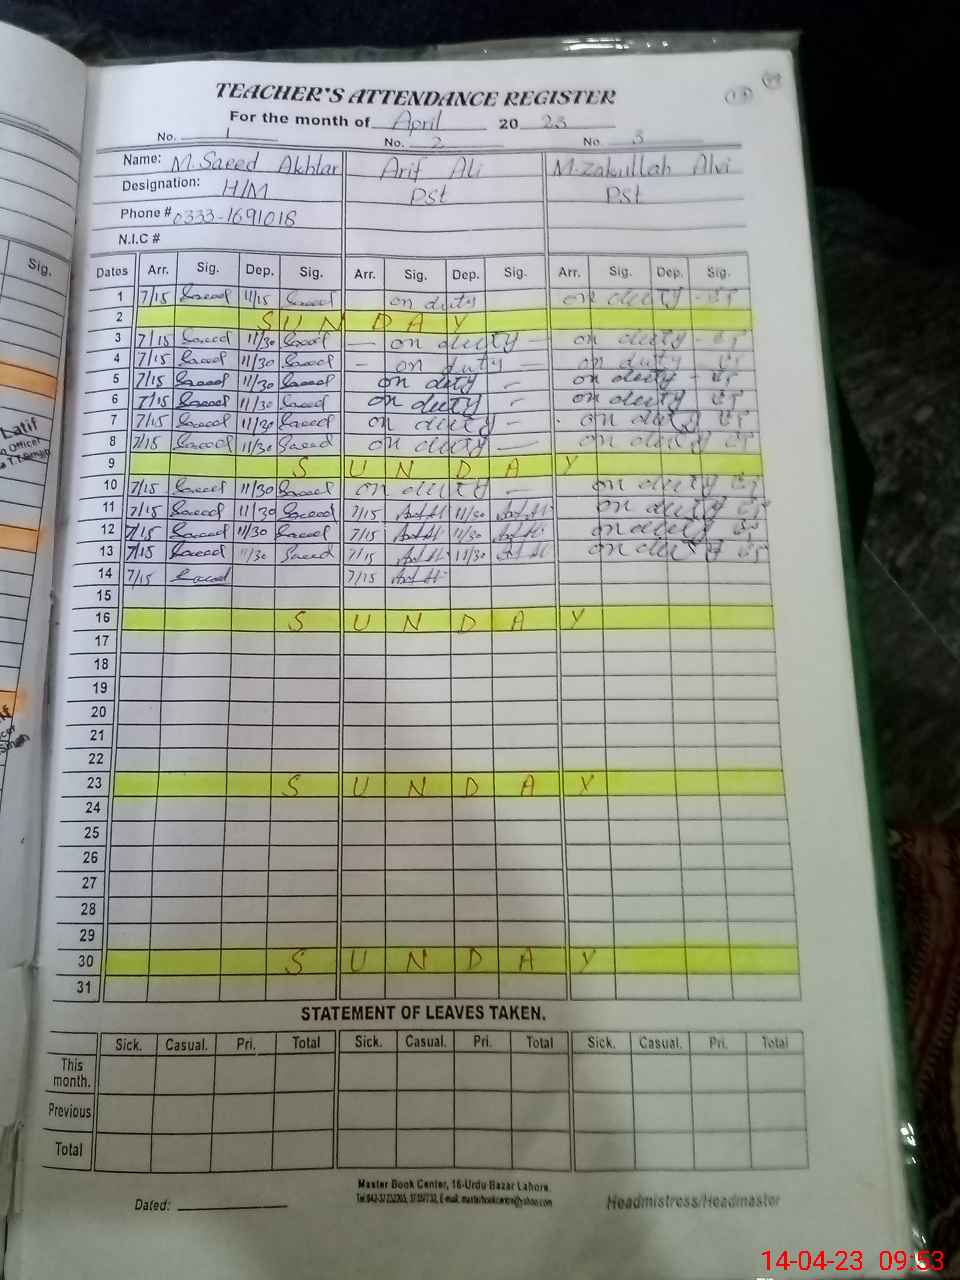 TEACHER'S ATTENDANCE REGISTER
For the month of April 2023
No. 1 No. 2 No. 3
Name: M. Saeed Akhtar Arif Ali M. Zakullah Alvi
Designation: H/M Pst Pst
Phone # 0333-1691018
N.I.C #
Dates Arr. Sig. Dep. Sig. Arr. Sig. Dep. Sig. Arr. Sig. Dep. Sig.
1 7/15 Saeed 11/15 Saeed on duty on duty
2 SUNDAY
3 7/15 Saeed 11/30 Saeed — on duty — on duty
4 7/15 Saeed 11/30 Saeed — on duty — on duty
5 7/15 Saeed 11/30 Saeed on duty - on duty
6 7/15 Saeed 11/30 Saeed on duty - on duty
7 7/15 Saeed 11/30 Saeed on duty - on duty
8 7/15 Saeed 11/30 Saeed on duty — on duty
9 SUNDAY
10 7/15 Saeed 11/30 Saeed on duty — on duty
11 7/15 Saeed 11/30 Saeed 7/15 11/30 on duty
12 7/15 Saeed 11/30 Saeed 7/15 11/30 on duty
13 7/15 Saeed 11/30 Saeed 7/15 11/30 on duty
14 7/15 Saeed 7/15
15
16 SUNDAY
17
18
19
20
21
22
23 SUNDAY
24
25
26
27
28
29
30 SUNDAY
31
STATEMENT OF LEAVES TAKEN.
Sick. Casual. Pri. Total Sick. Casual. Pri. Total Sick. Casual. Pri. Total
This
month.
Previous
Total
Master Book Center, 16-Urdu Bazar Lahore.
Dated: Headmistress/Headmaster
Sig.
Latif
Officer
14-04-23 09:53